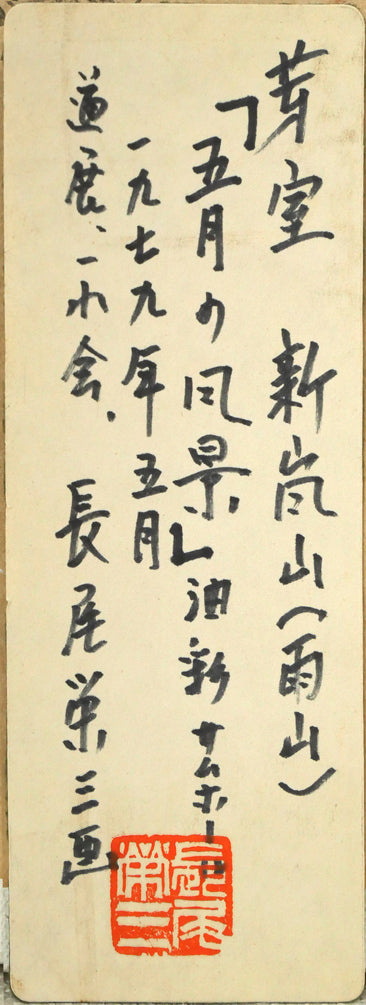 芽室 新嵐山(雨山)
「五月の風景」油彩 サムホール
一九七九年五月
道展、一水会、 長尾栄三画
長尾
栄三